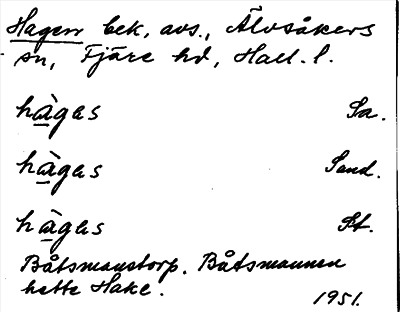 Hagen bek, avs., Älvsåkers
sn, Fjäre hd, Hall. l.
hàgas Sa.
hàgas Sand.
hàgas St.
Båtsmanstorp. Båtsmannen
hette Hake.
1951.